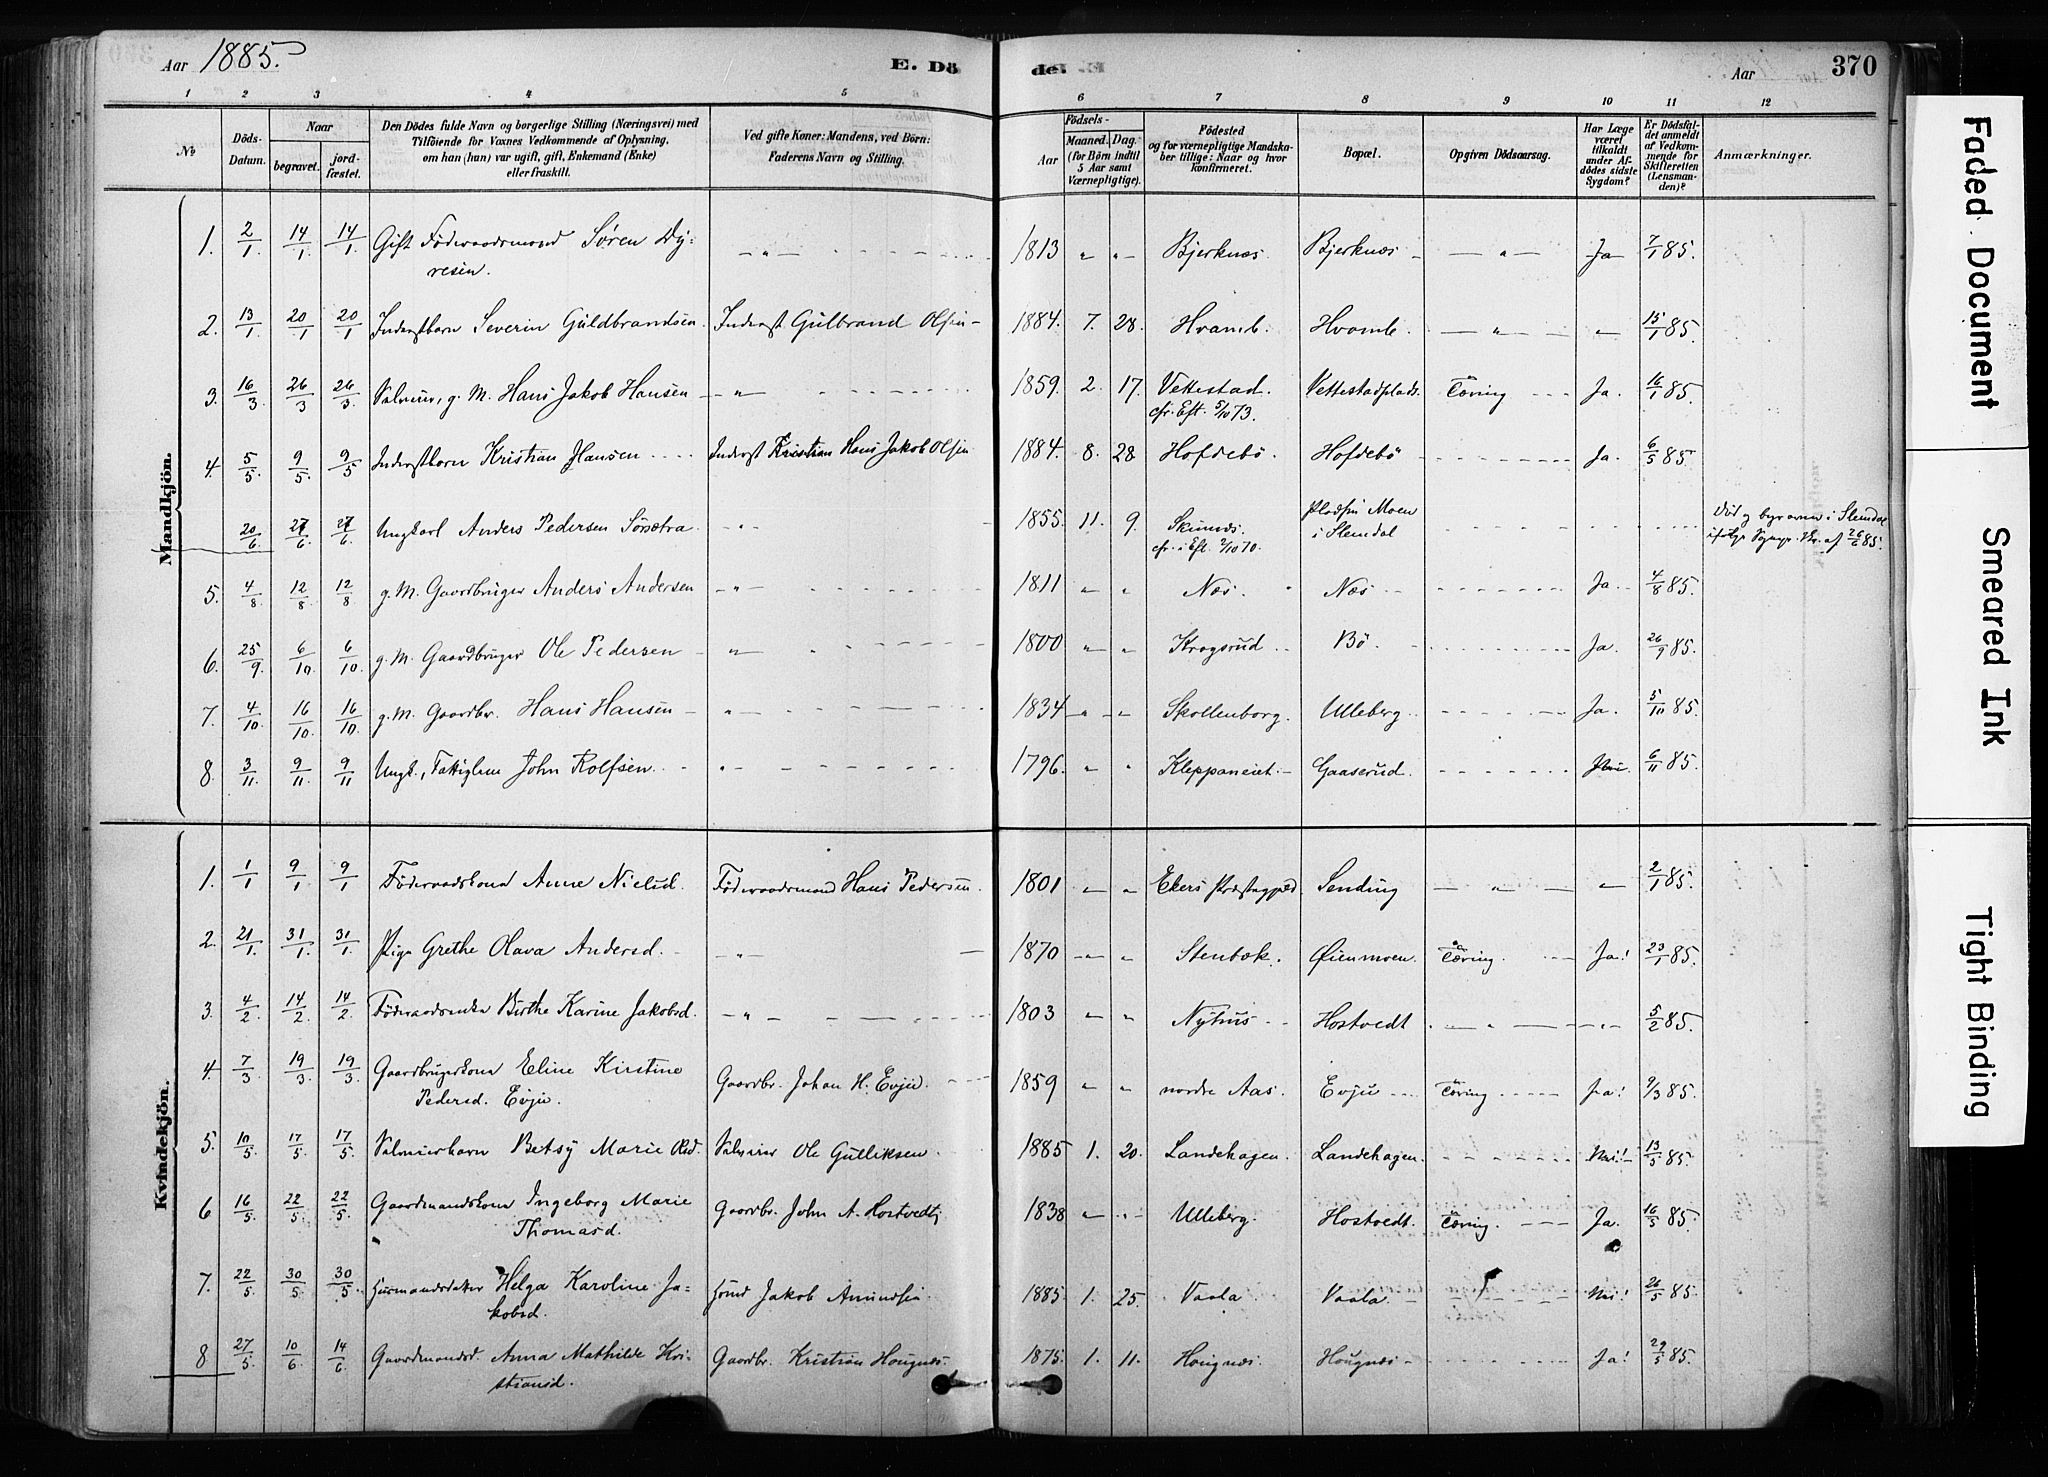 Aar 1885.
E. Dö
de.
Aar
370
1 2 3 4 5 6 7 8 9 10 11 12
No
Döds-Datum.
Naar
begravet.
jord-fæstet.
Den Dödes fulde Navn og borgerlige Stilling (Næringsvei) med
Tilföiende for Voxnes Vedkommende af Oplysning,
om han (hun) var ugift, gift, Enkemand (Enke)
eller fraskilt.
Ved gifte Koner: Mandens, ved Börn:
Faderens Navn og Stilling.
Födsels-
Aar
Maaned. Dag.
(for Börn indtil
5 Aar samt
Værnepligtige).
Födested
og for værnepligtige Mandska-
ber tillige: Naar og hvor
konfirmeret.
Bopæl.
Opgiven Dödsaarsag.
Har Læge
været
tilkaldt
under Af-
dödes sidste
Sygdom?
Er Dödsfal-
det anmeldt
af Vedkom-
mende for
Skifteretten
(Lensman-
den)?
Anmærkninger.
Mandkjön.
1. 2/1 14/1 14/1 Gift Föderaadsmand Søren Dy- -"- 1813 " " Bjerknæs Bjerknæs - " - Ja 7/1 85.
resen.
2. 13/1 20/1 20/1 Inderstbarn Severin Guldbrandsen. Inderst Gulbrand Olsen 1884. 7. 28. Hvamb. Hvamb. - " - " 15/1 85.
3. 16/3 26/3 26/3 g. M. Hans Jakob Hansen -"- 1859. 2. 17. Vettestad. Vettestadplads. Tæring Ja. 16/3 85.
cfr. Eft. 5/10 73.
4. 5/5 9/5 9/5 Inderstbarn Kristian Hansen Inderst Kristian Hans Jakob Olsen 1884. 8. 28 Hofdebö. Hofdebö Ja. 6/5 85.
20/6 27/6 27/6 Ungkarl Anders Pedersen Sørsætra -"- 1855. 11. 9. Skimnæs. Pladsen Moen
cfr. i Eft. 2/10 70. i Slemdal
Död og begraven i Slemdal
ifölge 26/6 85.
5. 4/8 12/8 12/8 g. M. Gaardbruger Anders Andersen -"- 1811 " " Næs. Næs Ja 4/8 85.
6. 25/9 6/10 6/10 g. M. Gaardbruger Ole Pedersen -"- 1800 " " Kragsrud Bö Ja. 26/9 85.
7. 4/10 16/10 16/10 g. M. Gaardbr. Hans Hansen -"- 1834 " " Skollenborg. Ulleberg. Ja. 5/10 85.
8. 3/11 9/11 9/11 Ungk., Fattiglem John Rolfsen -"- 1796. " " Kleppaneiet. Gaaserud. Nei. 6/11 85.
Kvindekjön.
1. 1/1 9/1 9/1 Föderaadskona Anne Nielsd. Föderaadsmand Hans Pedersen. 1801 " " Ekers Præstegjeld. Sending - " - " 2/1 85.
2. 21/1 31/1 31/1 Pige Grethe Olava Andersd. -"- 1870 " " Stenbæk. Øienmoen. Tæring. Ja! 23/1 85.
3. 4/2 14/2 14/2 Föderaadsenke Birthe Karine Jakobsd. -"- 1803 " " Nyhus Hostvedt - " - " 5/2 85.
4. 7/3 19/3 19/3 Gaardbrugerkona Eline Kirstine Gaardbr. Johan H. Evju. 1859 " " nordre Aas. Evju Tæring Ja! 9/3 85.
Pedersd. Evju.
5. 10/5 17/5 17/5 Betsy Marie Olsd. Ole Gulliksen. 1885 1. 20. Landehagen. Landehagen. Nei! 13/5 85.
6 16/5 22/5 22/5 Gaardmandskona Ingeborg Marie Gaardbr. John A. Hostvedt 1838 " " Ulleberg. Hostvedt. Tæring. Ja. 16/5 85.
Thomasd.
7. 22/5 30/5 30/5 Husmandsdatter Helga Karoline Ja- Husmd Jakob Amundsen 1885. 1. 25. Vaala Vaala. Nei! 26/5 85.
kobsd.
8 27/5 10/6 14/6 Gaardmandsd. Anna Mathilde Kri- Gaardbr. Kristian Hougnæs. 1875. 1. 11. Hougnæs. Hougnæs Ja! 29/5 85.
stiansd.
Faded Document
Smeared Ink
Tight Binding